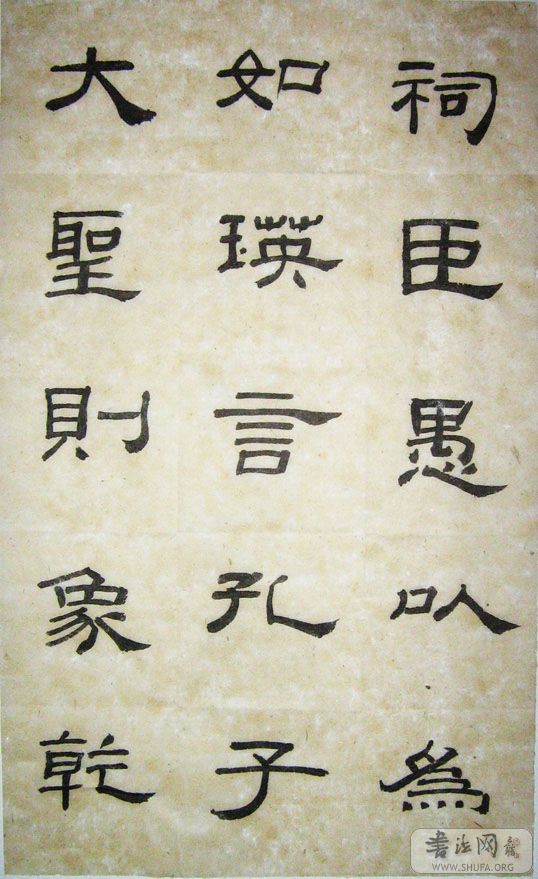 祠臣愚以為
如瑛言孔子
大聖則象乾
書法网
WWW.SHUFA.ORG